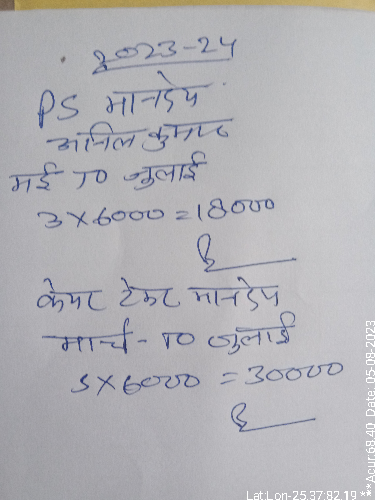 2023-24
PS मानदेय
अनिल कुमार
मई TO जुलाई
3×6000 = 18000
केयर टेकर मानदेय
मार्च - TO जुलाई
5×6000 = 30000
Lat Lon-25.37:82.19 *** Acur:68.40 Date: 05-08-2023